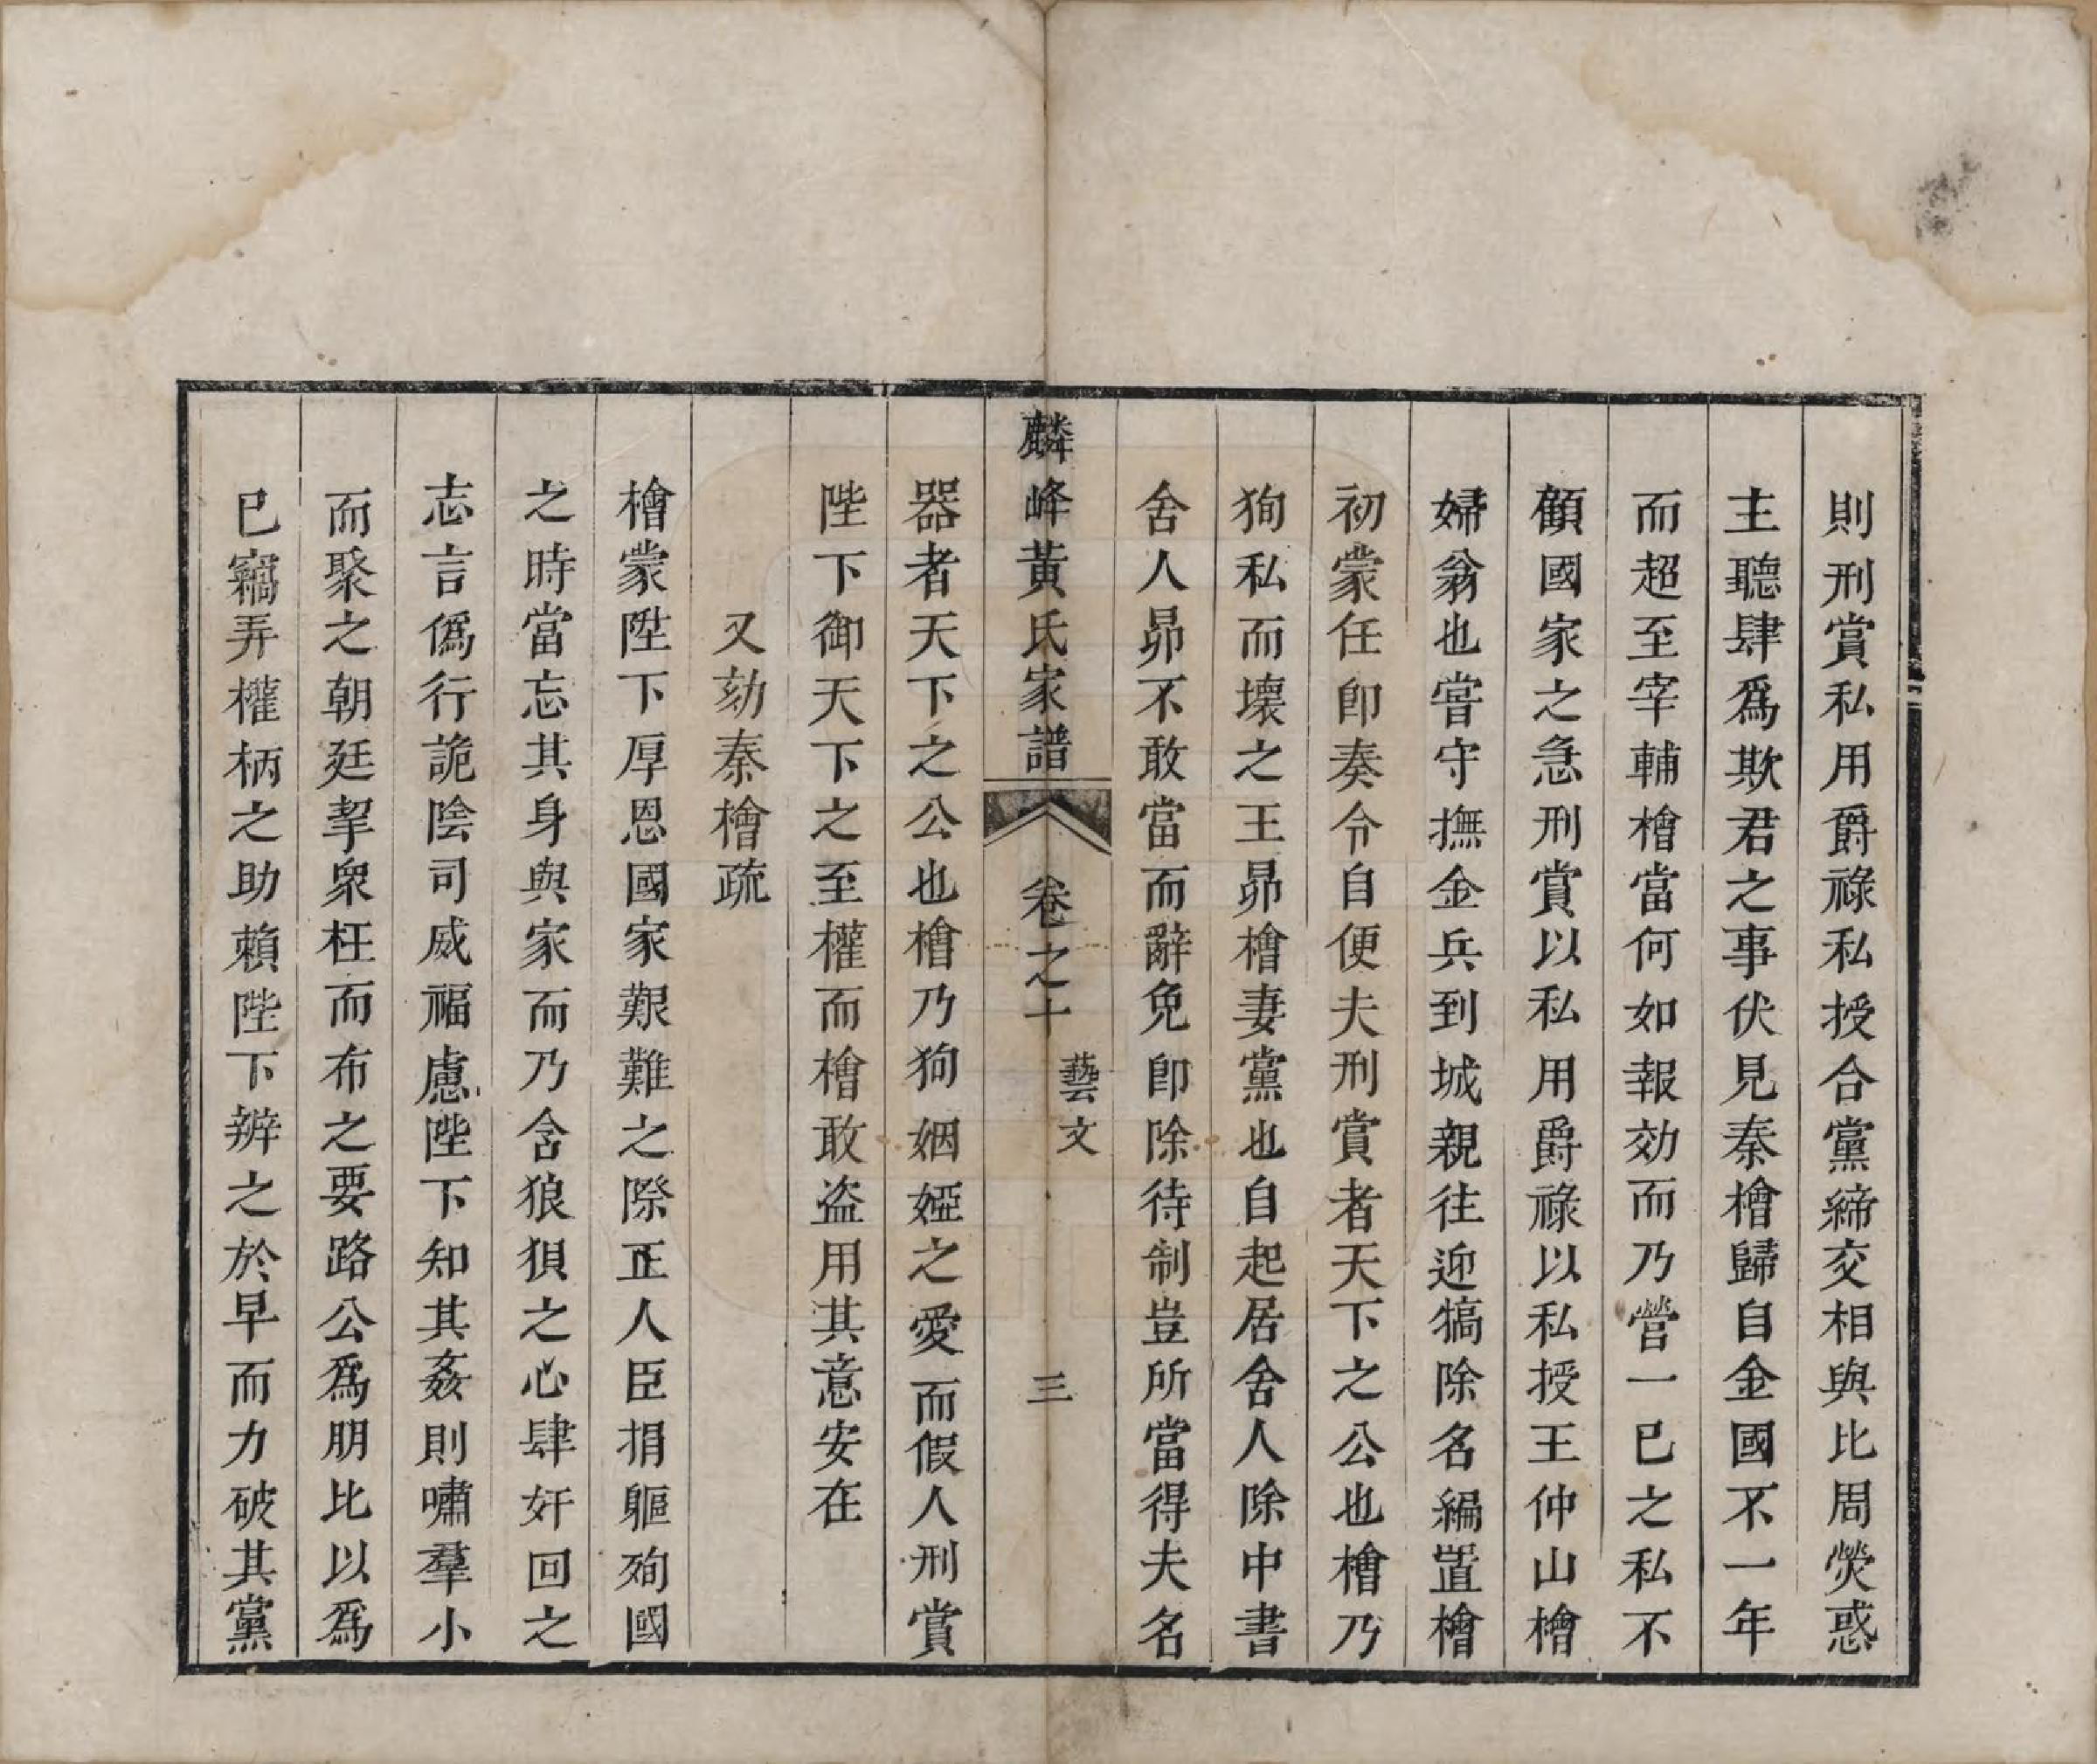 則刑賞私用爵祿私授合黨締交相與比周熒惑
主聽肆爲欺君之事伏見秦檜歸自金國不一年
而超至宰輔檜當何如報効而乃營一已之私不
顧國家之急刑賞以私用爵祿以私授王仲山檜
婦翁也嘗守撫金兵到城親往迎犒除名編置檜
初蒙任卽奏令自便夫刑賞者天下之公也檜乃
狥私而壞之王昴檜妻黨也自起居舍人除中書
舍人昴不敢當而辭免卽除待制豈所當得夫名
麟峰黃氏家譜 卷之十 藝文 三
器者天下之公也檜乃狥姻婭之愛而假人刑賞
陛下御天下之至權而檜敢盜用其意安在
又劾秦檜疏
檜蒙陞下厚恩國家艱難之際正人臣捐軀殉國
之時當忘其身與家而乃含狼狽之心肆奸回之
志言僞行詭陰司威福慮陛下知其姦則嘯羣小
而聚之朝廷挈衆枉而布之要路公爲朋比以爲
已竊弄權柄之助賴陛下辨之於早而力破其黨